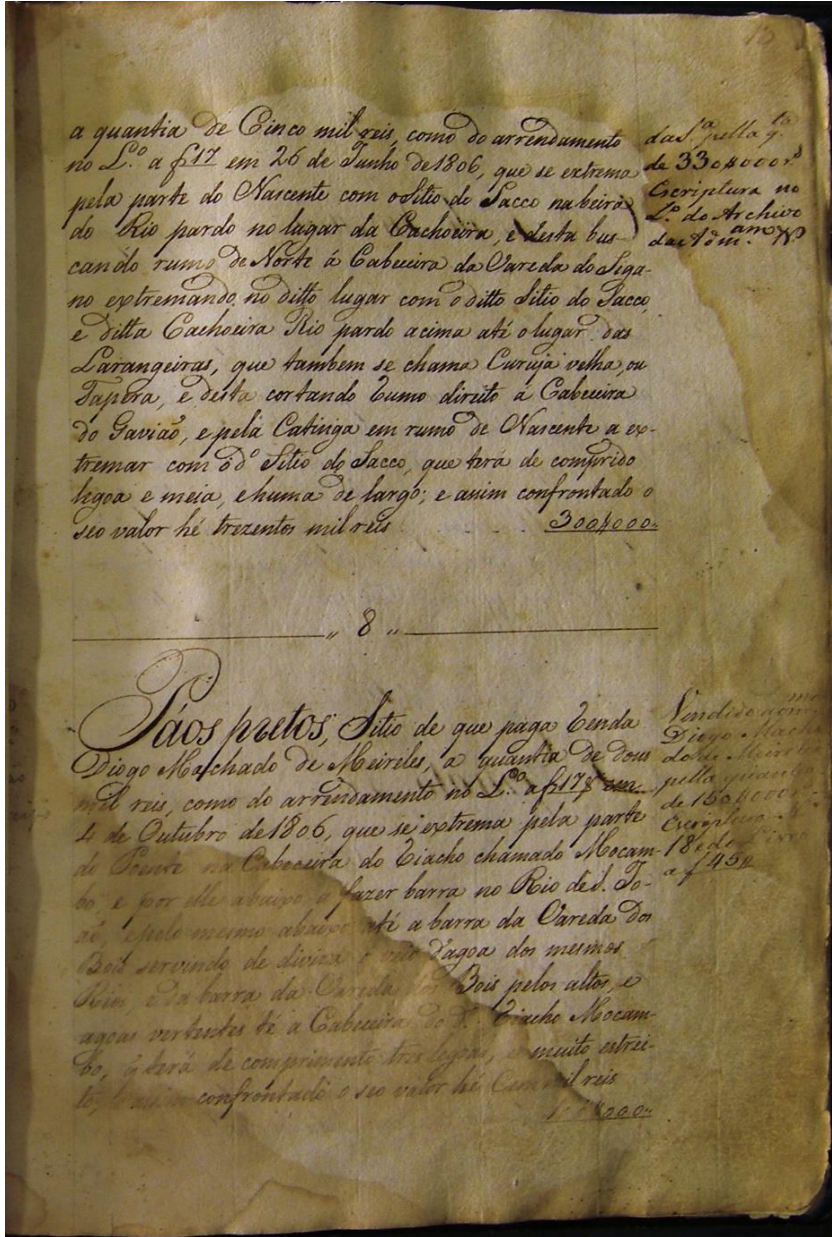 13
a quantia de Cinco mil reis, como do arrendamento
no L.º a f17 em 26 de Junho de 1806, que se extrema
pela parte do Nascente com o Sitio do Sacco na beira
do Rio pardo no lugar da Cachoeira, e desta bus-
cando rumo de Norte á Cabeceira da Vareda do Siga-
no extremando no ditto lugar com o ditto Sitio do Sacco,
e ditta Cachoeira Rio pardo acima até o lugar das
Larangeiras, que tambem se chama Curujá velha, ou
Tapera, e desta cortando Rumo direito á Cabeceira
do Gavião, e pela Catinga em rumo de Nascente a ex-
tremar com o d.º Sitio do Sacco, que terá de comprido
legoa e meia, e huma de largo; e assim confrontado o
seo valor hé trezentos mil reis 300$000
da S.ª pella q.ta
de 330$000 r.s
Escriptura no
L.º do Archivo
da Adm.am
" 8 "
Páos pretos, Sitio de que paga Renda
Diogo Machado de Meireles, a quantia de dous
mil reis, como do arrendamento no L.º a f17 em
4 de Outubro de 1806, que se extrema pela parte
do Poente na Cabeceira do Riacho chamado Mocam-
bo, e por elle abaixo a fazer barra no Rio de S. Jo-
aõ, e pelo mesmo abaixo até a barra da Vareda dos
Bois servindo de diviza o veio d'agoa dos mesmos
Rios, e da barra da Vareda dos Bois pelos altos, e
agoas vertentes té a Cabeceira do d.º Riacho Mocam-
bo, q̃ terá de comprimento tres legoas, e muito estrei-
to, e assim confrontado o seo valor hé Cem mil reis
000
Vendido
Diogo Macha
do de Meireles
pella quantia
de 150$000
Escriptura
18 do Livro
a f 45